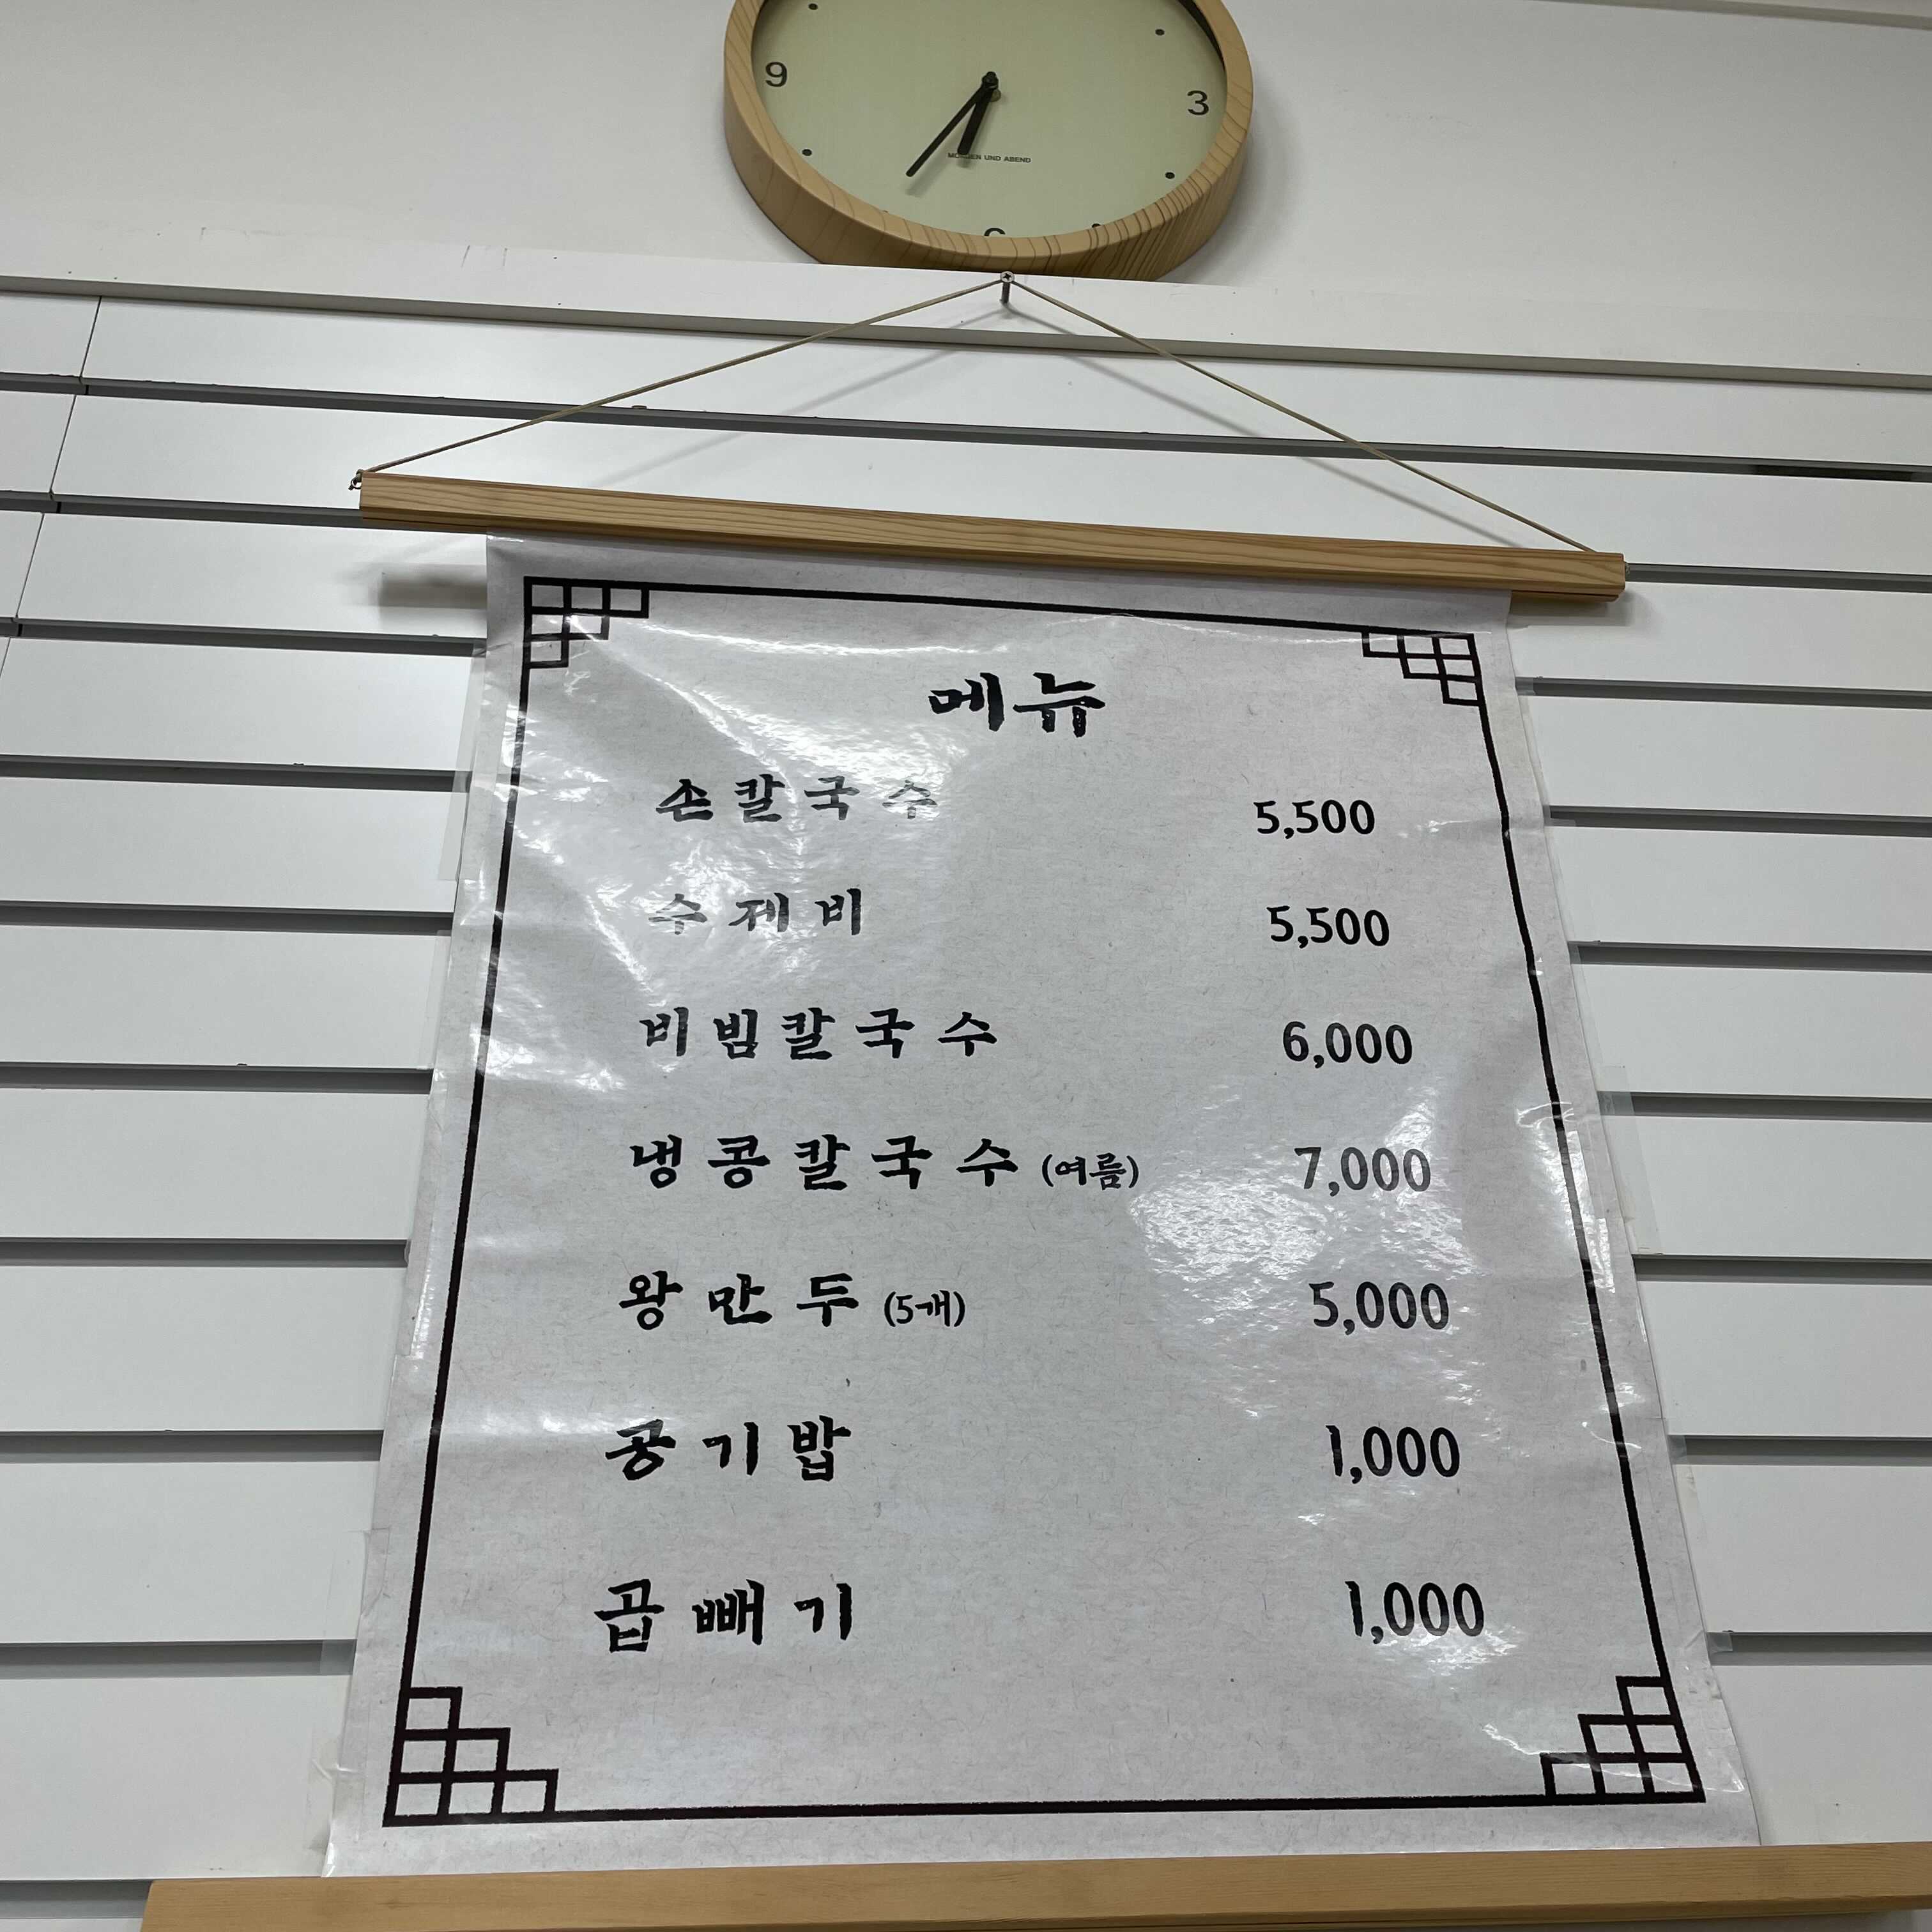 9
3
MORGEN UND ABEND
6
메뉴
손칼국수 5,500
수제비 5,500
비빔칼국수 6,000
냉콩칼국수 (여름) 7,000
왕만두 (5개) 5,000
공기밥 1,000
곱빼기 1,000